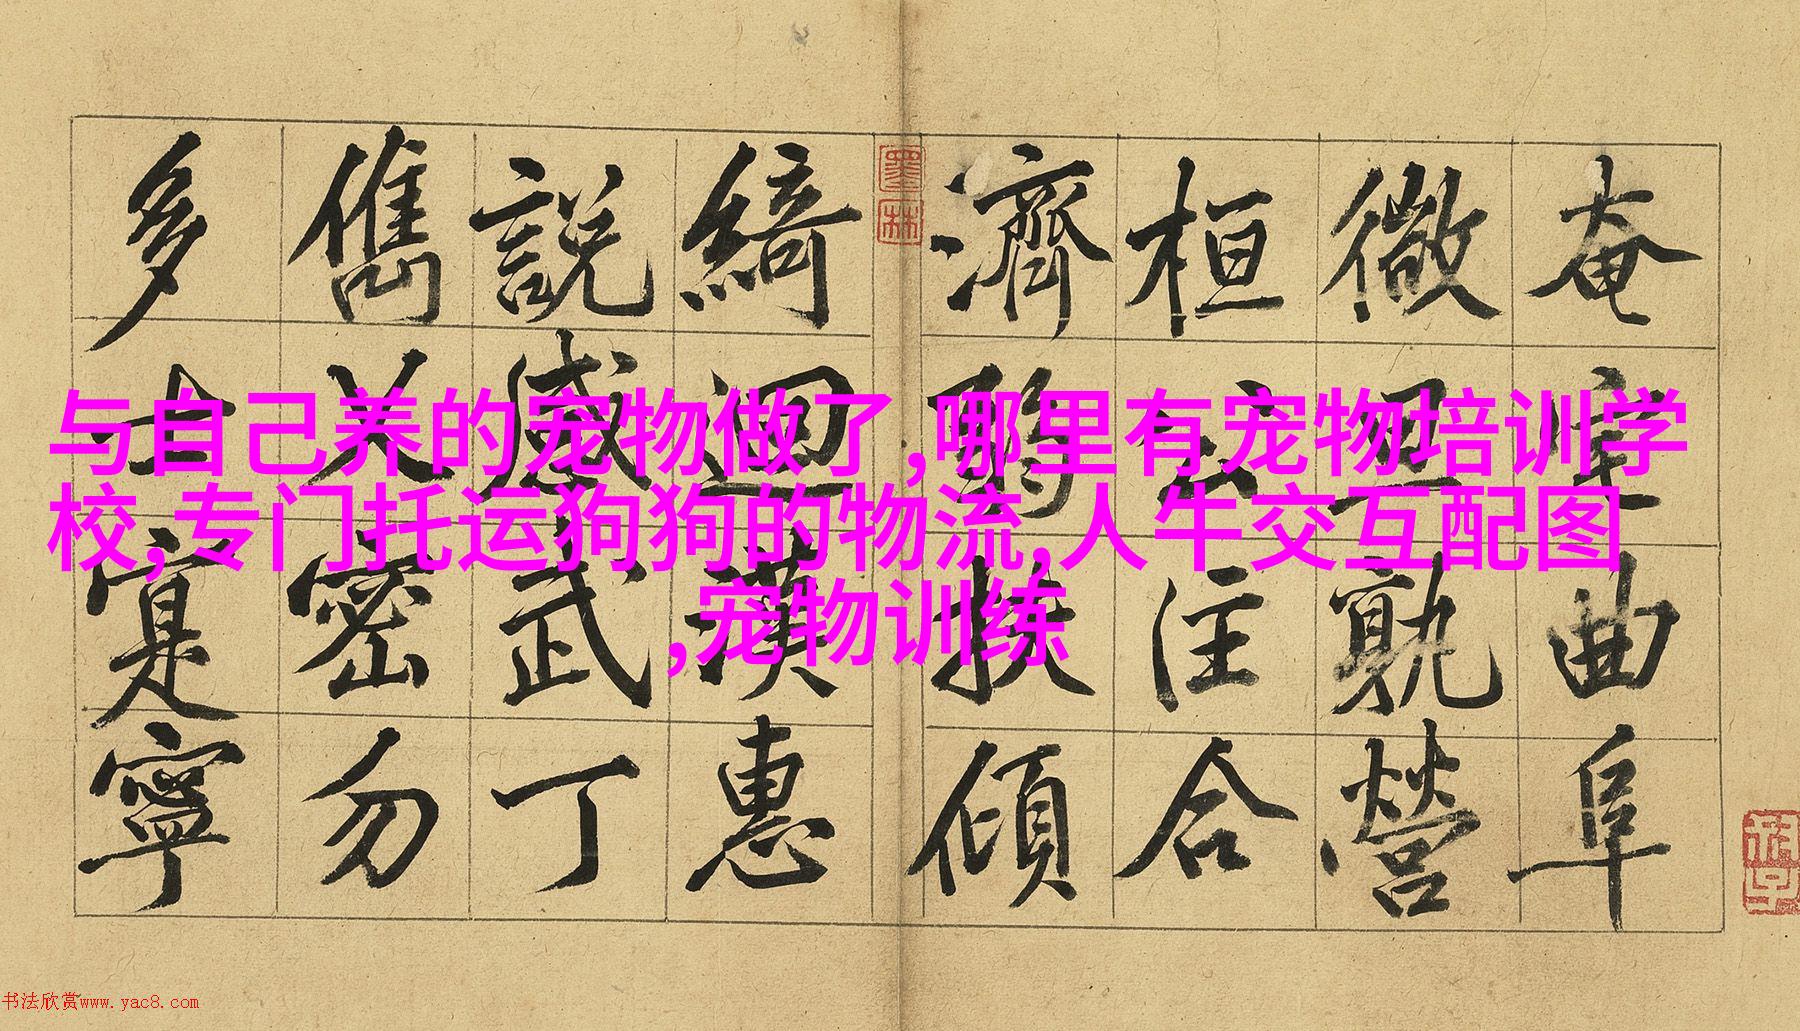 奄宅曲阜
微旦孰營
桓公匡合
濟弱扶傾
綺迴漢惠
說感武丁
儁乂密勿
多士寔寧
墨林
与自己养的宠物做了,哪里有宠物培训学
校,专门托运狗狗的物流,人牛交互配图
,宠物训练
书法欣赏www.yac8.com